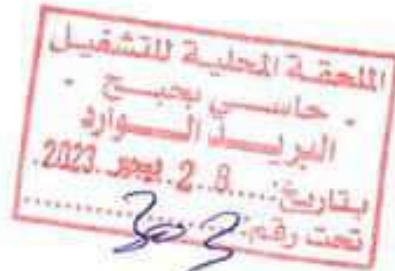 الملحقة المحلية للتشغيل
- حاسي بحبح -
البريد الوارد
بتاريخ:.....2.8 2023.
تحت رقم: 303